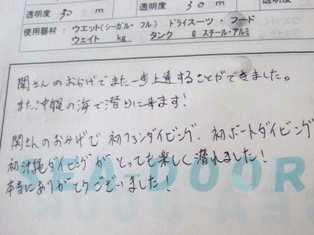 透明度 30 m 透明度 30 m
使用器材 ・ウエット(シーガル・フル) ドライスーツ・フード
ウェイト kg タンク ℓ スチール・アルミ
関さんのおかげでまた一歩上達することができました。
また沖縄の海で潜りに来ます!
関さんのおかげで 初ファンダイビング、初ボートダイビング
初沖縄ダイビングが とっても楽しく潜れました!
本当にありがとうございました!
SEA-DOOR